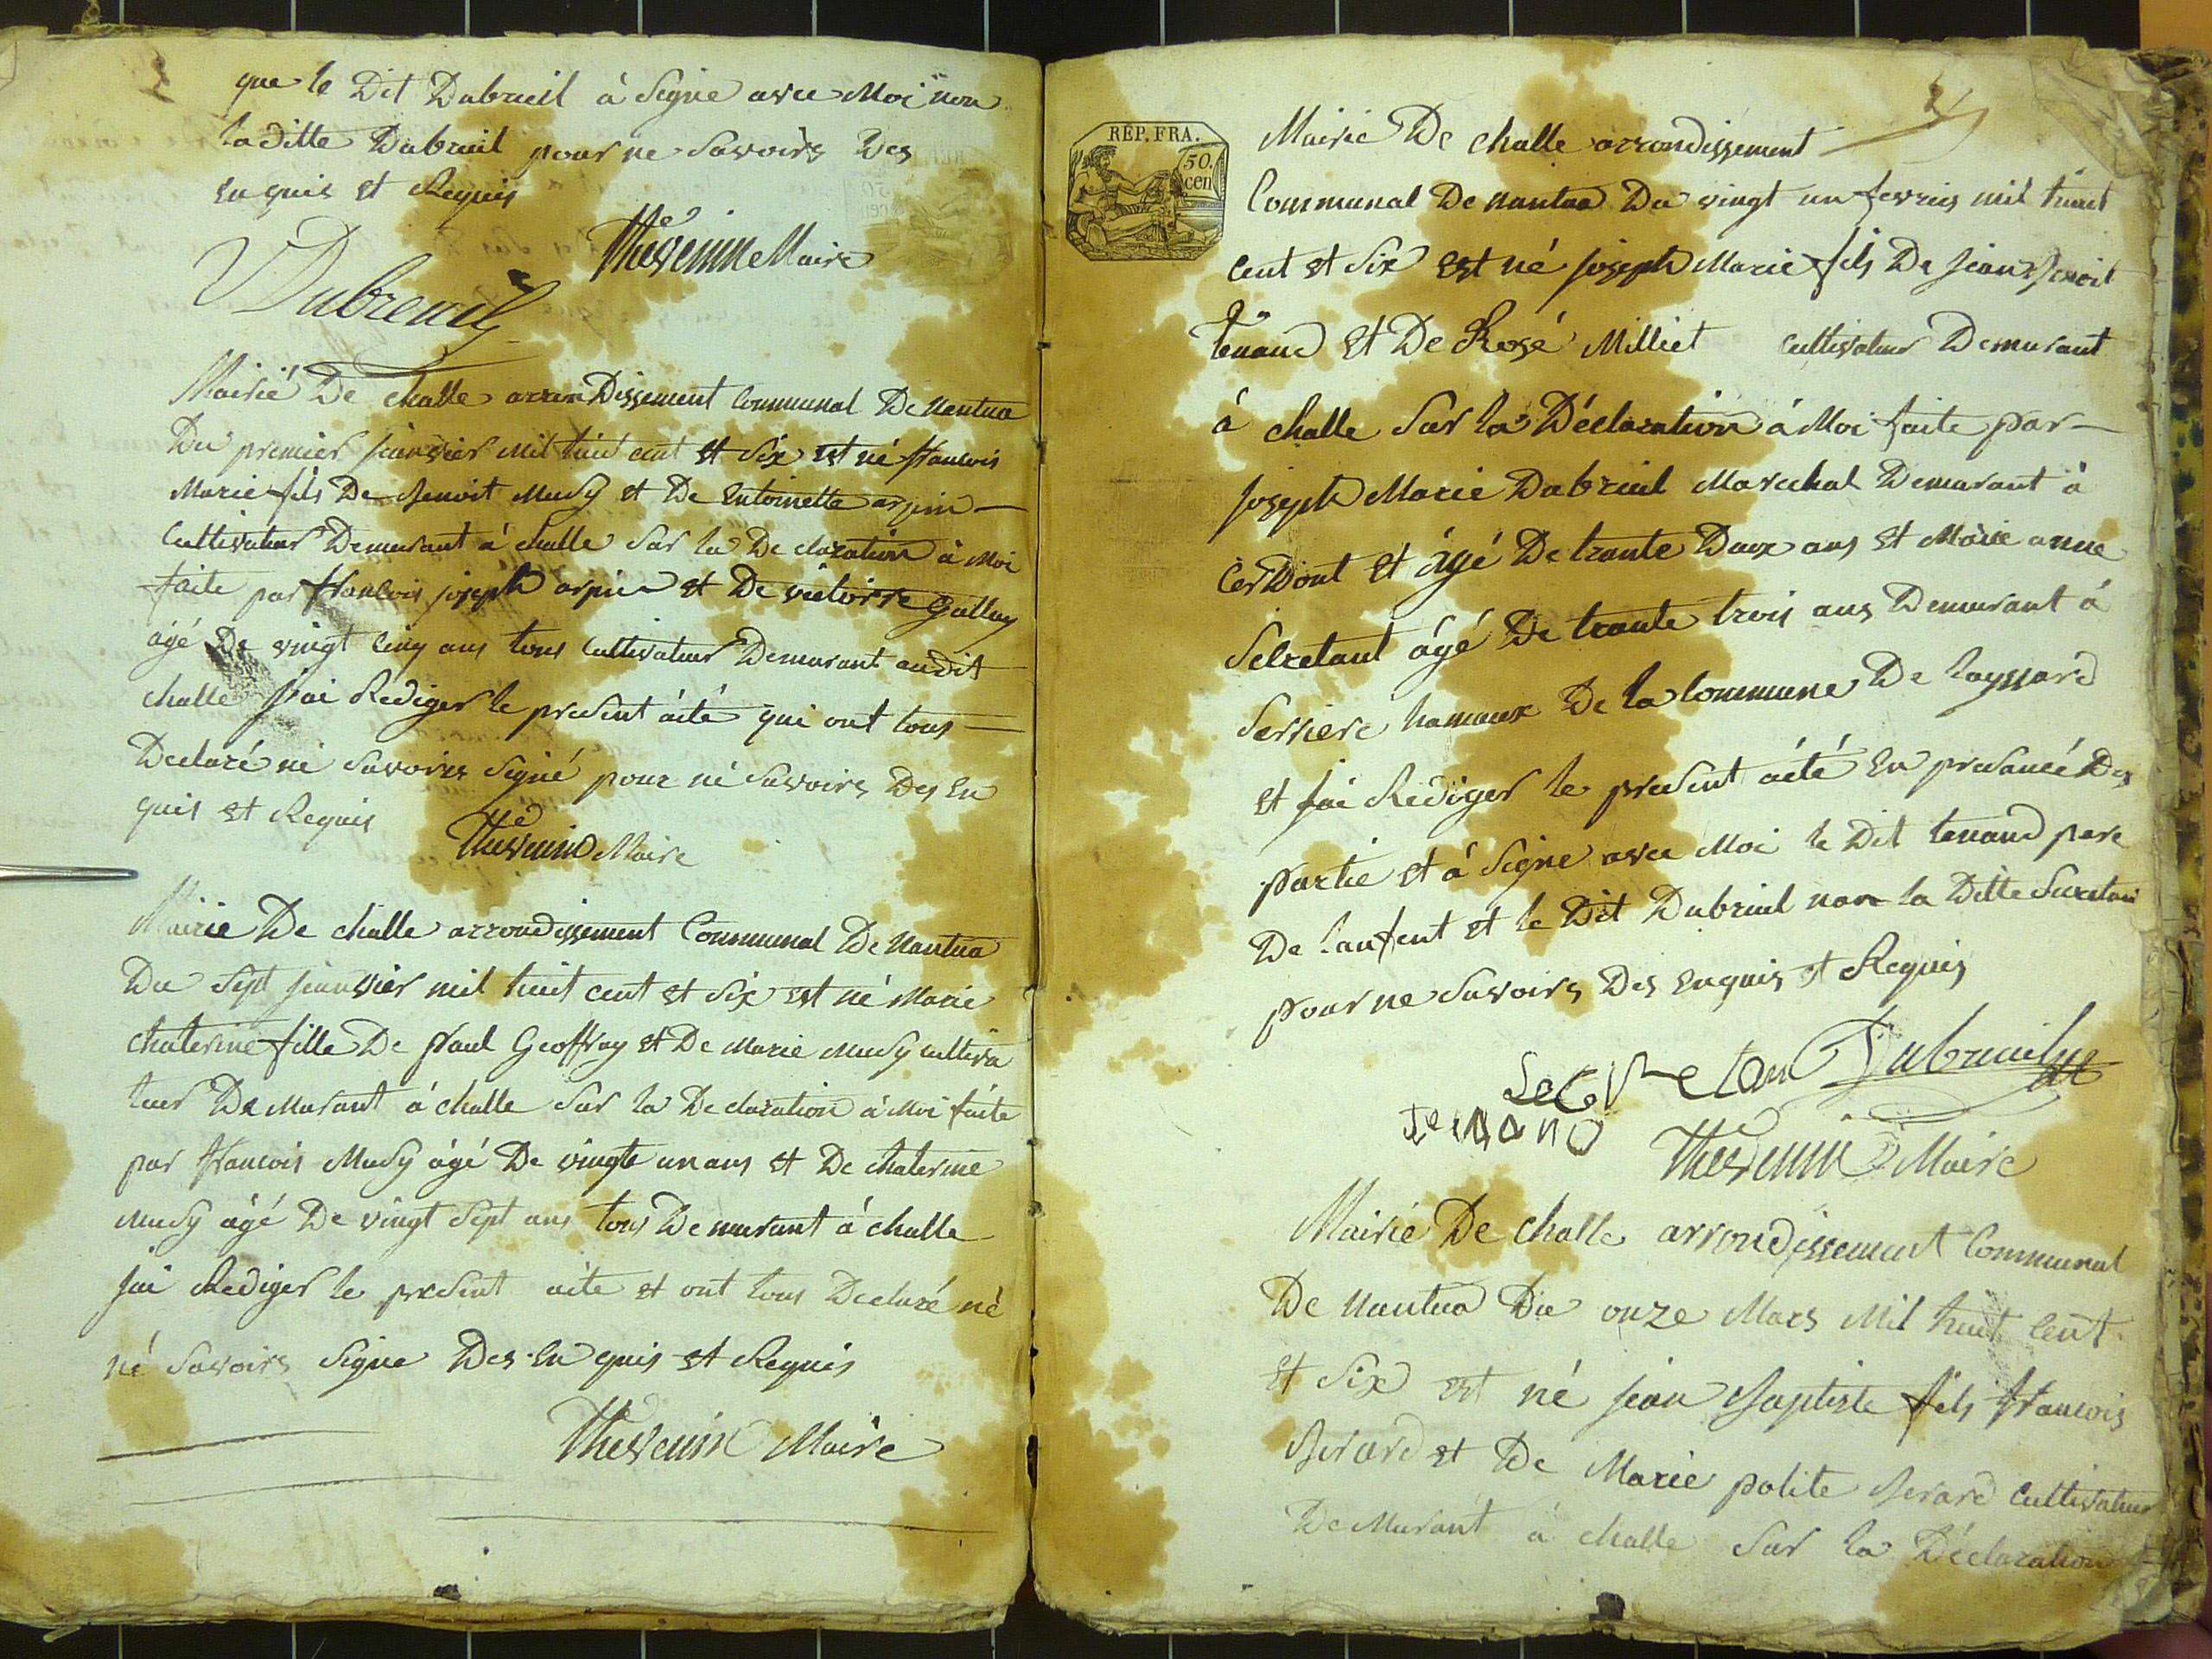 que le Dit Dubreuil à Signe avec Moi non
la ditte Dubreuil pour ne Savoirs Des
en quis et Requis
Thevenin Maire
Dubreuil
Mairié De challe arrondissement Communal De Nantua
Du premier janvier mil huit cent et Six est né francois
Marie fils De Benoit Mudy et De Entoinette arpin
Cultivateur Demurant à challe Sur la Declaration à Moi
faite par francois joseph arpin et De victoirre Gallay
agé De vingt cinq ans tous Cultivateur Demurant audit
challe j'ai Rediger le present àcté qui ont tous
Declaré né Savoirs Signé pour né Savoirs Des En
quis et Requis
Thevenin Maire
Mairie De challe arrondissement Communal De Nantua
Du Sept janvier mil huit cent et Six est né Marie
chaterine fille De Paul Geoffray et De Marie Mudy cultiva
teur De Murant à challe Sur la Declaration à Moi faite
par francois Mudy àgé De vingte un ans et De chaterine
Mudy agé De vingt Sept ans tous Demurant à challe
jai Rediger le present acte et ont tous Declaré né
né Savoirs Signe Des En quis et Requis
Thevenin Maire
2
RÉP. FRA.
50.
cen
Mairie De challe arrondissement
Communal De Nantua Du vingt un fevrier mil huit
cent et Six est né joseph Marie fils De jean Benoit
tenand et De Rosé Milliet cultivateur Demurant
à challe Sur la Déclaration à Moi faite par
joseph Marie Dubreuil Marechal Demurant à
Cerdont et àgé De trante Deux ans et Marie anne
Secretant àgé De trante trois ans Demurant à
Serriere hameaux De la Commune De layssard
et jai Rediger le present àcté En presancé Des
partié et à Signe avec Moi le Dit tenand pere
De lanfent et le Dit Dubreuil non la Ditte Secretan
pour ne Savoirs Des enquis et Requis
Secretan Dubreuil
tenand
Thevenin Maire
Mairié De challe arrondissement Communal
De Nantua Du onze Mars Mil huit Cent
et Six est né jean Baptiste fils francois
Berard et De Marie polite Berard Cultivateur
De Murant à challe Sur la Déclaration